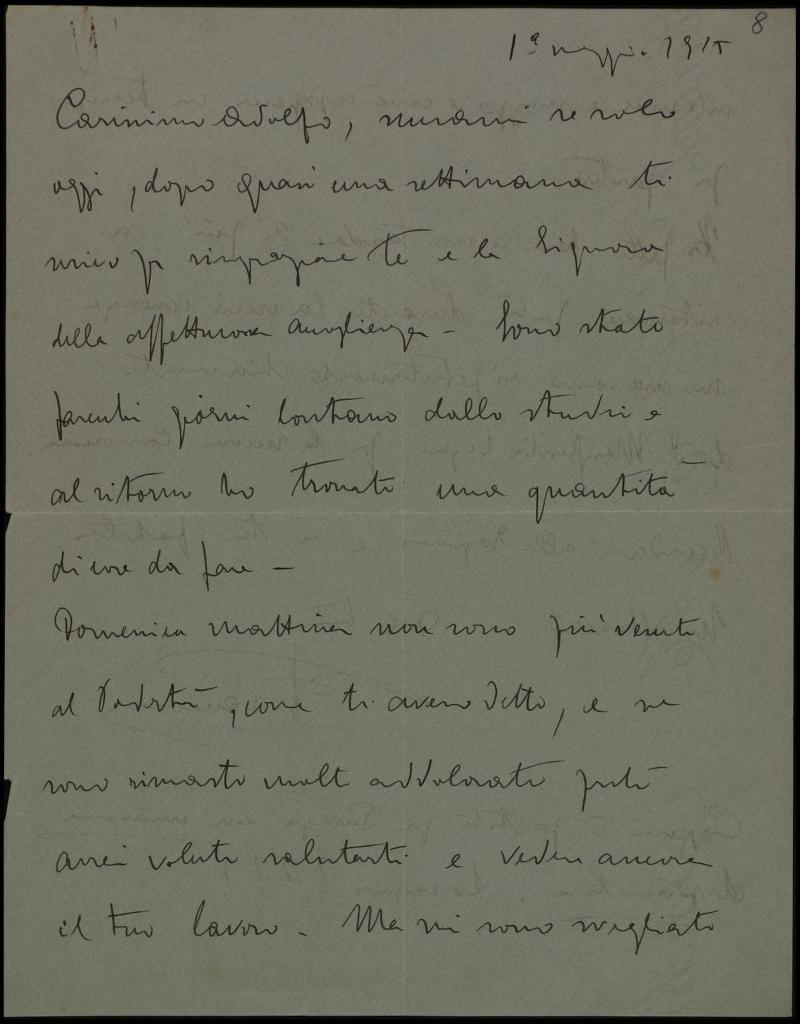 8
1º maggio 1915
Carissimo Adolfo, scusami se solo
oggi, dopo quasi una settimana ti
scrivo p ringraziare te e la Signora
della affettuosa accoglienza - Sono stato
parecchi giorni lontano dallo studio e
al ritorno ho trovato una quantità
di cose da fare -
Domenica mattina non sono più venuto
al , come ti avevo detto, e ne
sono rimasto molto addolorato
avrei voluto salutarti e vedere ancora
il tuo lavoro - Ma mi sono svegliato